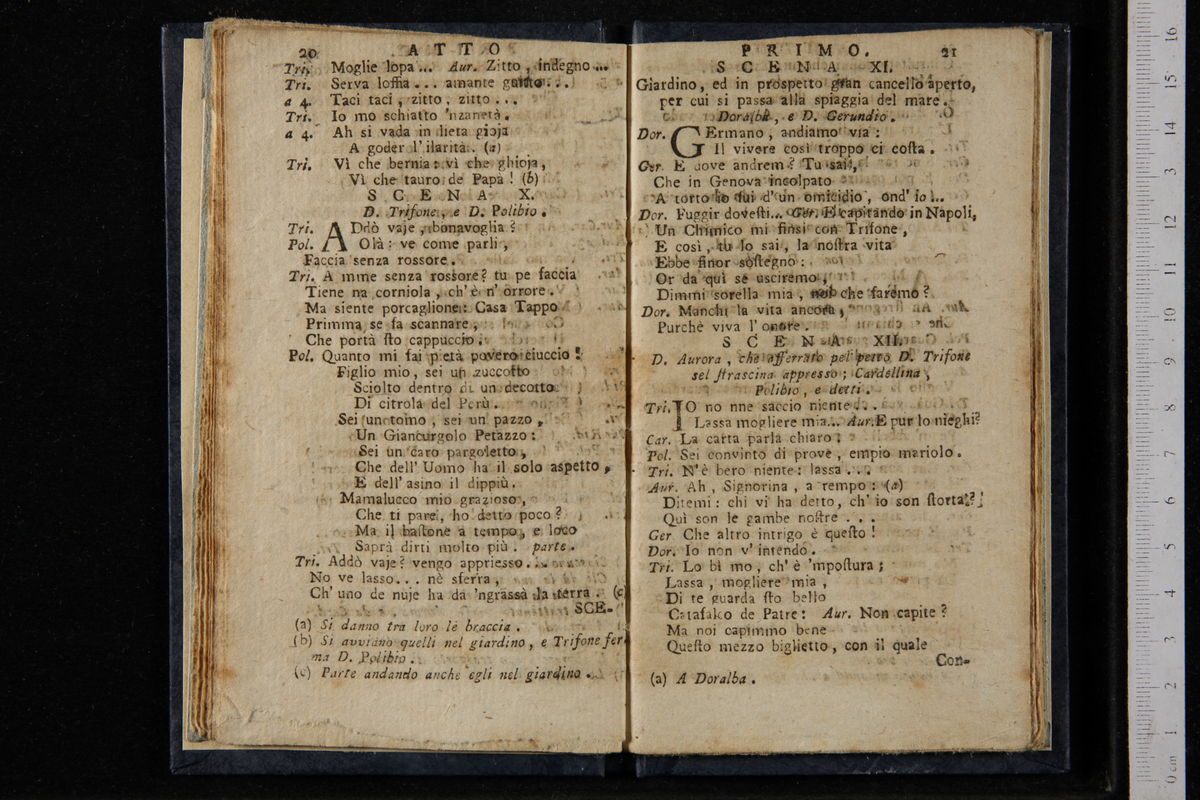 20 ATTO
Tri. Moglie lopa ... Aur. Zitto, indegno ...
Tri. Serva loffia ... amante guitto ...
a 4. Taci taci, zitto, zitto ...
Tri. Io mo schiatto 'nzanetà.
a 4. Ah si vada in lieta gioja
A goder l'ilarità. (a)
Tri. Vì che bernia: vì che ghioja,
Vì che tauro de Papà! (b)
SCENA X.
D. Trifone, e D. Polibio.
Tri. ADdò vaje, bonavoglia?
Pol. Olà: ve come parli,
Faccia senza rossore.
Tri. A mme senza rossore? tu pe faccia
Tiene na corniola, ch'è n'orrore.
Ma siente porcaglione: Casa Tappo
Primma se fa scannare,
Che portà sto cappuccio.
Pol. Quanto mi fai pietà povero ciuccio!
Figlio mio, sei un zuccotto
Sciolto dentro di un decotto
Di citrola del Perù.
Sei un tomo, sei un pazzo,
Un Giancurgolo Petazzo:
Sei un caro pargoletto,
Che dell'Uomo ha il solo aspetto,
E dell'asino il dippiù.
Mamalucco mio grazioso,
Che ti pare, ho detto poco?
Ma il bastone a tempo, e loco
Saprà dirti molto più. parte.
Tri. Addò vaje? vengo appriesso...
No ve lasso... nè sferra,
Ch'uno de nuje ha da 'ngrassà la terra. (c)
SCE-
(a) Si danno tra loro le braccia.
(b) Si avviano quelli nel giardino, e Trifone fer-
ma D. Polibio.
(c) Parte andando anche egli nel giardino.
PRIMO. 21
SCENA XI.
Giardino, ed in prospetto gran cancello aperto,
per cui si passa alla spiaggia del mare.
Doralba, e D. Gerundio.
Dor. GErmano, andiamo via:
Il vivere così troppo ci costa.
Ger. E dove andrem? Tu sai,
Che in Genova incolpato
A torto io fui d'un omicidio, ond'io ...
Dor. Fuggir dovesti... Ger. E capitando in Napoli,
Un Chimico mi finsi con Trifone,
E così, tu lo sai, la nostra vita
Ebbe finor sostegno:
Or da quì se usciremo,
Dimmi sorella mia, noi che faremo?
Dor. Manchi la vita ancora,
Purchè viva l'onore.
SCENA XII.
D. Aurora, che afferrato pel petto D. Trifone
sel strascina appresso; Cardellina,
Polibio, e detti.
Tri. IO no nne saccio niente...
Lassa mogliere mia... Aur. E pur lo nieghi?
Car. La carta parla chiaro:
Pol. Sei convinto di prove, empio mariolo.
Tri. N'è bero niente: lassa ...
Aur. Ah, Signorina, a tempo: (a)
Ditemi: chi vi ha detto, ch'io son storta?
Quì son le gambe nostre ...
Ger. Che altro intrigo è questo!
Dor. Io non v'intendo.
Tri. Lo bì mo, ch'è 'mpostura;
Lassa, mogliere mia,
Di te guarda sto bello
Catafalco de Patre: Aur. Non capite?
Ma noi capimmo bene
Questo mezzo biglietto, con il quale
Con-
(a) A Doralba.
0 cm 1 2 3 4 5 6 7 8 9 10 11 12 13 14 15 16